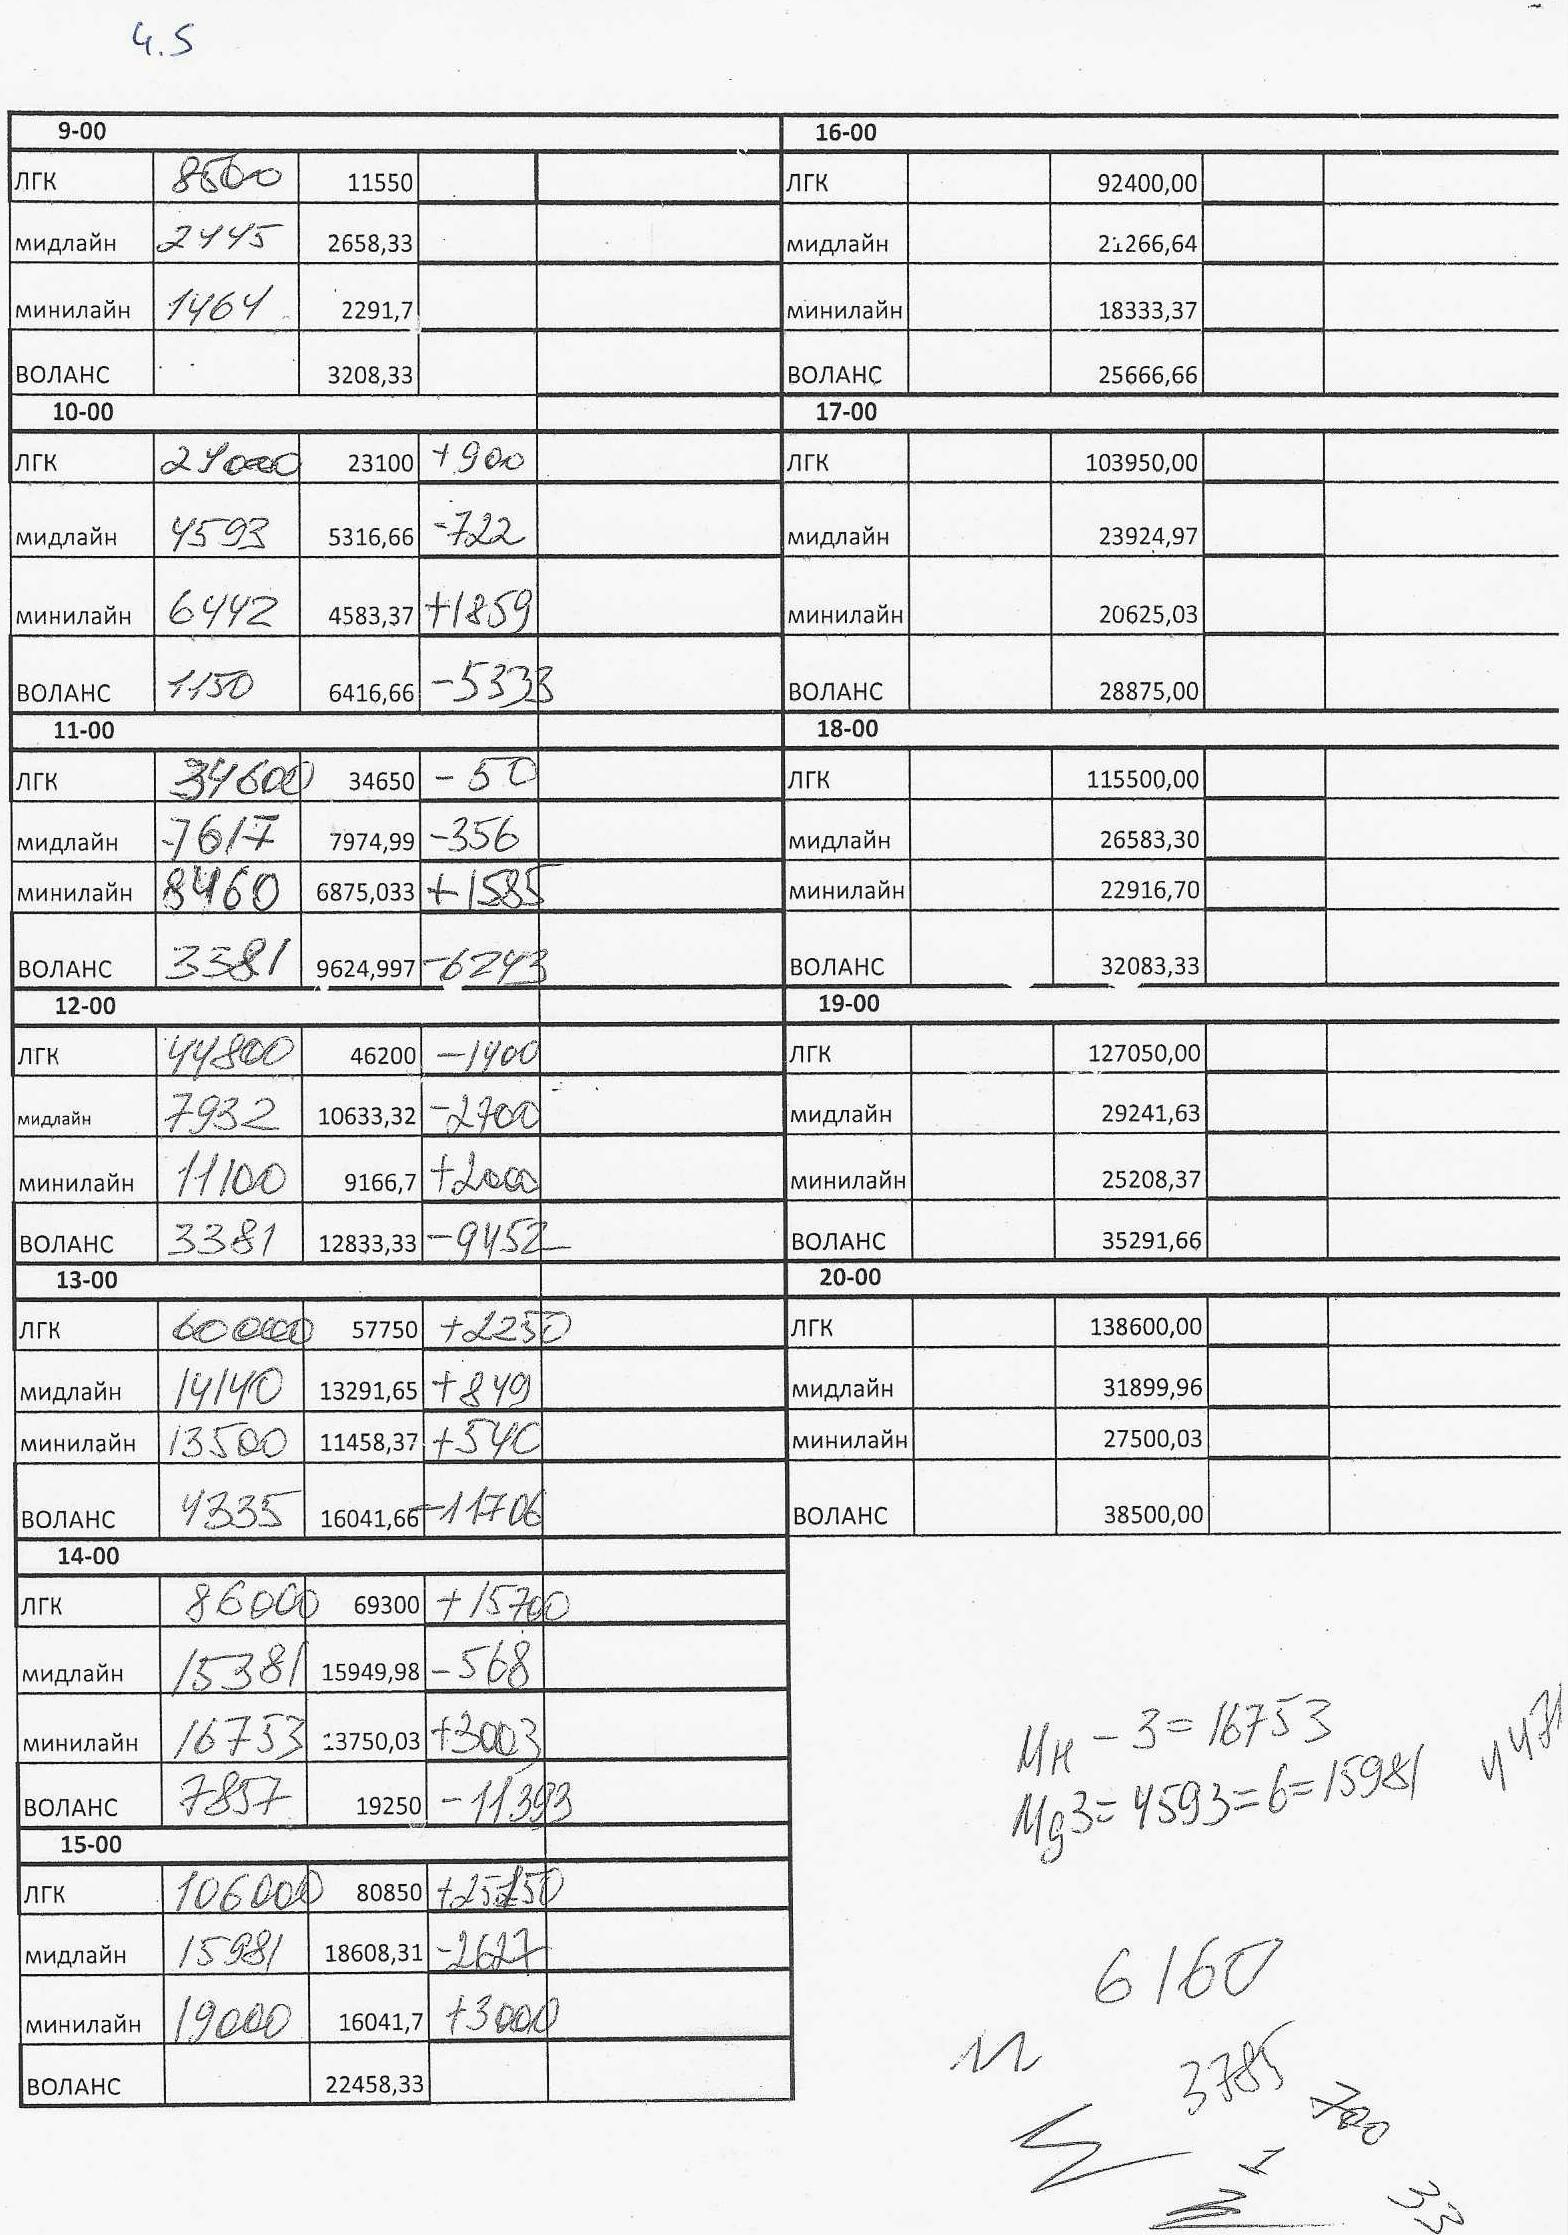 4.5
9-00
ЛГК 8500 11550
мидлайн 2445 2658,33
минилайн 1464 2291,7
ВОЛАНС 3208,33
10-00
ЛГК 24000 23100 +900
мидлайн 4593 5316,66 -722
минилайн 6442 4583,37 +1859
ВОЛАНС 1150 6416,66 -5333
11-00
ЛГК 34600 34650 -50
мидлайн 7617 7974,99 -356
минилайн 8460 6875,033 +1585
ВОЛАНС 3381 9624,997 -6243
12-00
ЛГК 44800 46200 -1400
мидлайн 7932 10633,32 -2700
минилайн 11100 9166,7 +2000
ВОЛАНС 3381 12833,33 -9452
13-00
ЛГК 60000 57750 +2250
мидлайн 14140 13291,65 +849
минилайн 13500 11458,37 +540
ВОЛАНС 4335 16041,66 -11706
14-00
ЛГК 86000 69300 +15700
мидлайн 15381 15949,98 -568
минилайн 16753 13750,03 +3003
ВОЛАНС 7857 19250 -11393
15-00
ЛГК 106000 80850 +25150
мидлайн 15981 18608,31 -2627
минилайн 19000 16041,7 +3000
ВОЛАНС 22458,33
16-00
ЛГК 92400,00
мидлайн 21266,64
минилайн 18333,37
ВОЛАНС 25666,66
17-00
ЛГК 103950,00
мидлайн 23924,97
минилайн 20625,03
ВОЛАНС 28875,00
18-00
ЛГК 115500,00
мидлайн 26583,30
минилайн 22916,70
ВОЛАНС 32083,33
19-00
ЛГК 127050,00
мидлайн 29241,63
минилайн 25208,37
ВОЛАНС 35291,66
20-00
ЛГК 138600,00
мидлайн 31899,96
минилайн 27500,03
ВОЛАНС 38500,00
Мн - 3 = 16753
Мд3 = 4593 = 6 = 15981
6160
3785
700
1
33